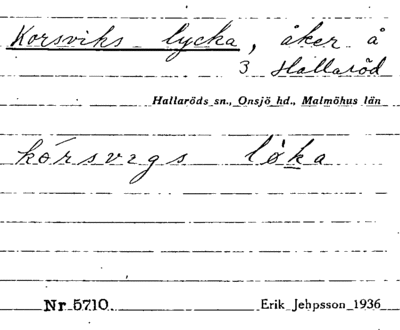 Korsviks lycka, åker å
3 Hallaröd
Hallaröds sn., Onsjö hd., Malmöhus län
kórsvigs lö̀ka
Nr 5710. Erik Jehpsson 1936